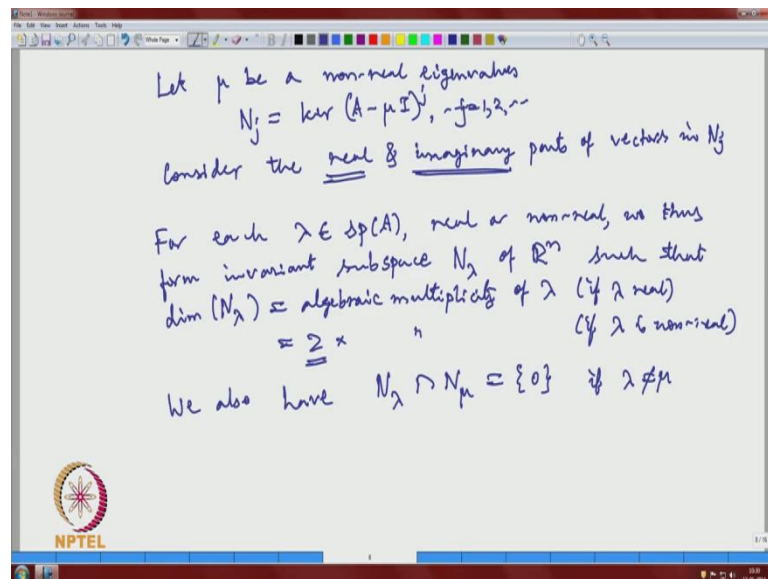 Note1 - Windows Journal
File Edit View Insert Actions Tools Help
Whole Page
B
Let μ be a non-real eigenvalues
N_j = ker (A - μI)^j, j=1,2,--
Consider the real & imaginary parts of vectors in N_j
For each λ ∈ sp(A), real or non-real, we thus
form invariant subspace N_λ of ℝ^n such that
dim (N_λ) = algebraic multiplicity of λ (if λ real)
= 2 × " (if λ is non-real)
We also have N_λ ∩ N_μ = {0} if λ ≠ μ
NPTEL